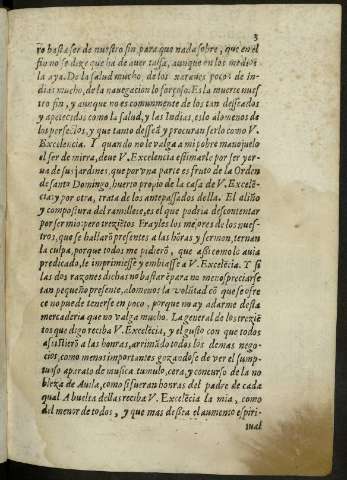 3
ro basta ser de nuestro fin para que nada sobre, que en el
fin no se dize que ha de auer tassa, aunque en los medios
la aya. De la salud mucho, de los xaraues poco: de in-
dias mucho, de la nauegacion lo forçoso. Es la muerte nues
tro fin, y aunque no es comunmente de los tan desseados
y apetecidos como la salud, y las Indias, eslo alomenos de
los perfectos, y que tanto dessean y procuran serlo como V.
Excelencia. Y quando no le valga a mi pobre manojuelo
el ser de mirra, deue V. Excelencia estimarle por ser yer-
ua de sus jardines, que por vna parte es fruto de la Orden
de santo Domingo, huerto propio de la casa de V. Excelē-
cia: y por otra, trata de los antepassados della. El aliño
y compostura del ramillete, es el que podria descontentar
por ser mio: pero treziētos Frayles los mejores de los nues-
tros, que se hallarō presentes a las hōras y sermon, ternan
la culpa, porque todos me pidierō, que assi como lo auia
predicado, le imprimiesse y embiasse a V. Excelēcia. Y si
las dos razones dichas no bastarē para no menospreciarse
tan pequeño presente, alomenos la volūtad cō que se ofre
ce no puede tenerse en poco, porque no ay adarme desta
mercaderia que no valga mucho. La general de los trezië
tos que digo reciba V. Excelēcia, y el gusto con que todos
assistierō a las honras, arrimādo todos los demas nego-
cios, como menos importantes gozādose de ver el sump-
tuoso aparato de musica, tumulo, cera, y concurso de la no
bleza de Auila, como si fueran honras del padre de cada
qual. A buelta dellas reciba V. Excelēcia la mia, como
del menor de todos, y que mas dessea el aumento espiri-
tual